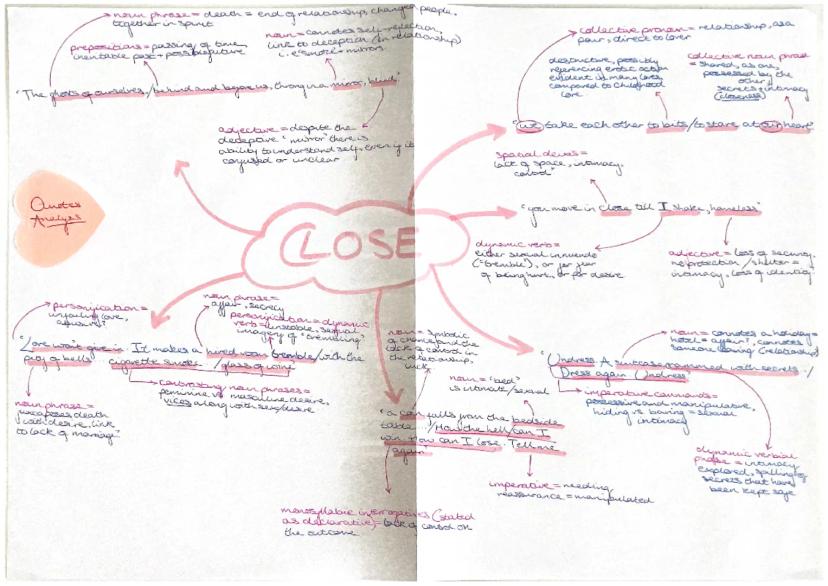 noun phrase = death = end of relationship, changed people,
together in spirit
prepositions = passing of time,
inevitable past + possible future
noun = connotes self-reflection,
link to deception (in relationship)
i.e "smoke + mirrors
"The ghosts of ourselves,/behind and before us, throng in a mirror, blind"
adjective = despite the
deceptive "mirror" there is
ability to understand self, even if is
confused or unclear
collective pronoun = relationship, as a
pair, direct to lover
destructive, possibly
referencing erotic action
evident in many loves,
compared to childhood
love
collective noun phrase
= shared, as one,
possessed by the
other,
secrets + intimacy
(closeness)
"we take each other to bits/to stare at our heart"
spacial deixis =
lack of space, intimacy,
control"
"you move in close till I shake, homeless"
dynamic verb =
either sexual innuendo
("tremble"), or for fear
of being hurt, or for desire
adjective = loss of security,
no protection / shelter =
intimacy, loss of identity"
Quotes
Analysis
CLOSE
personification =
unfailing love,
noun phrase =
affair, secrecy
personification = dynamic
verb = unstable, sexual
imagery of "trembling"
"Love won't give in. It makes a hired room tremble/with the
pity of bells/ cigarette smoke /glass of wine
noun phrase =
juxtaposes death
with desire, link
to lack of marriage"
contrasting noun phrases =
feminine vs masculine desire,
vices along with sex/desire
noun = symbolic
of chance and the
lack of control in
the relationship,
luck
noun = "bed"
is intimate / sexual
"a coin falls from the bedside
table.../How the hell/can I
win. How can I lose. Tell me
again"
imperative = needing
reassurance = manipulated
monosyllabic interrogatives (stated
as declarative) = lack of control on
the outcome
noun = connotes a holiday =
hotel = affair", connotes
someone leaving (relationship)
"Undress. A suitcase crammed with secrets./
Dress again. Undress"
imperative commands =
possessive and manipulative,
hiding vs baring = sexual
intimacy
dynamic verbial
phrase = intimacy
explored, spilling of
secrets that have
been kept safe